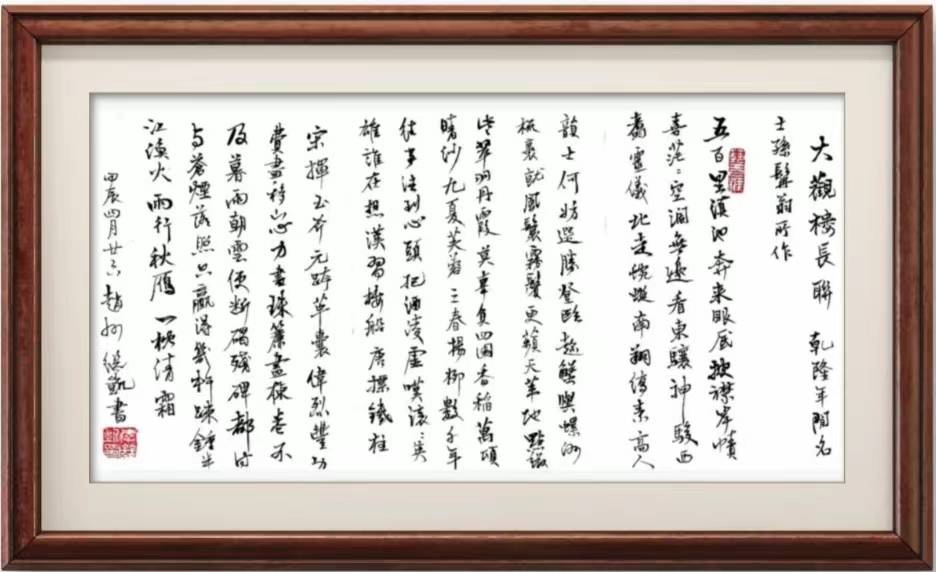 大觀樓長聯 乾隆年間名
士孫髯翁所作
五百里滇池奔來眼底披襟岸幘
喜茫〻空闊無邊看東驤神駿西
翥靈儀北走蜿蜒南翔縞素高人
韻士何妨選勝登臨趁蟹嶼螺洲
梳裹就風鬟霧鬢更蘋天葦地點綴
些翠羽丹霞莫辜負四圍香稻萬頃
晴沙九夏芙蓉三春楊柳數千年
往事注到心頭把酒凌虛嘆滾〻英
雄誰在想漢習樓船唐標鐵柱
宋揮玉斧元跨革囊偉烈豐功
費盡移山心力盡珠簾畫棟卷不
及暮雨朝雲便斷碣殘碑都付
與蒼煙落照只贏得幾杵疎鐘半
江漁火兩行秋雁一枕清霜
甲辰四月廿六 趙州 凱書